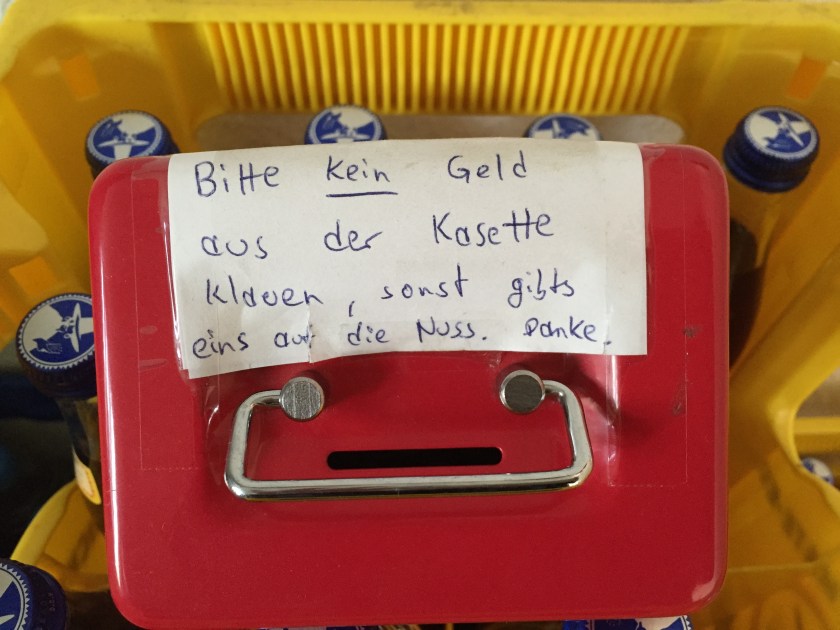 Bitte kein Geld
aus der Kasette
klauen, sonst gibts
eins auf die Nuss. Danke.